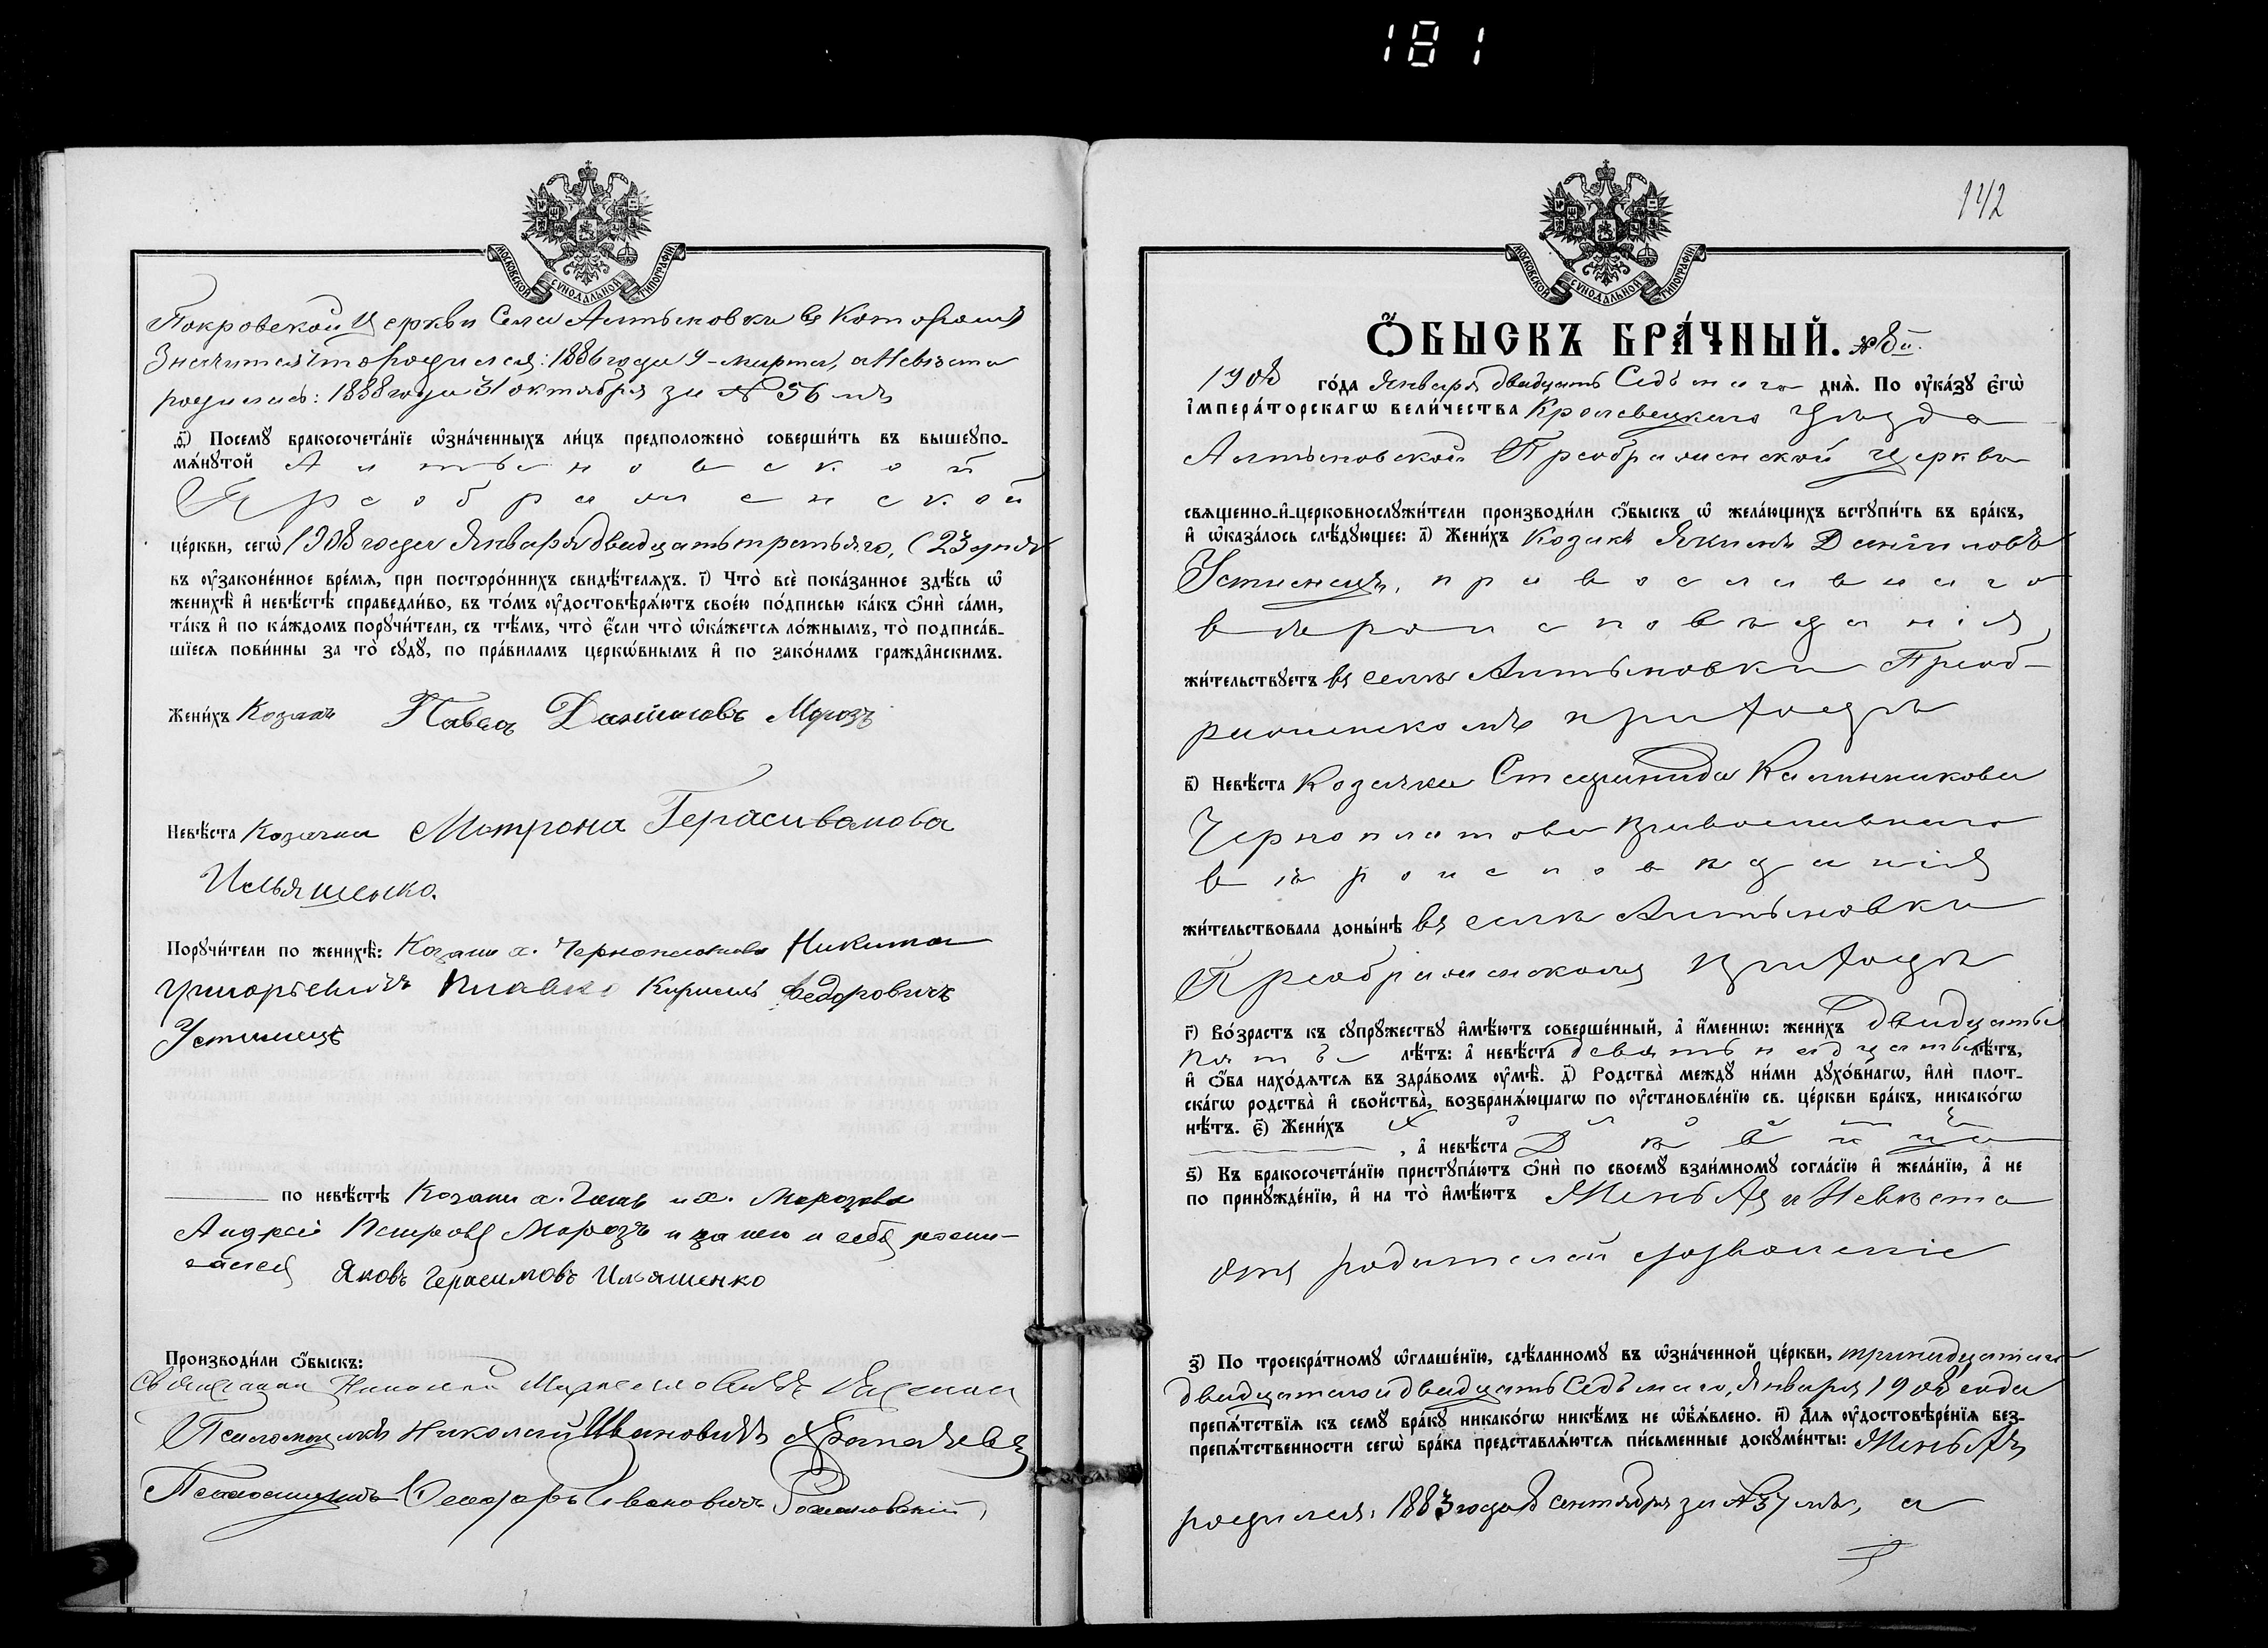 181
МОСКОВСКОЙ СѴНОДАЛЬНОЙ ТИПОГРАФІИ
Покровской Церкви Села Алтыновки въ которомъ
Значится что родился: 1886 года 9 марта, а Невѣста
родилась: 1888 года 31 октября за № 56 мъ
д҃) Посемꙋ бракосочета́нїе ѡ҆зна́ченныхъ ли́цъ предположено̀ соверши́ть въ вышеꙋпо-
мѧ́нꙋтой Алтыновской
Преображенской
це́ркви, сегѡ̀ 1908 года Января двадцать третьяго, (23 дня
въ ᲂу҆законе́нное вре́мѧ, при посторо́ннихъ свидѣ́телѧхъ. і҃) Что̀ всѐ пока́занное здѣ́сь ѡ҆
женихѣ̀ и҆ невѣ́стѣ справедли́во, въ то́мъ ᲂу҆достовѣрѧ́ютъ свое́ю по́дписью ка́къ ѻ҆нѝ са́ми,
та́къ и҆ по ка́ждомъ порꙋчи́тели, съ тѣ́мъ, что̀ є҆́сли что̀ ѡ҆ка́жетсѧ ло́жнымъ, то̀ подписа́в-
шїесѧ пови́нны за то̀ сꙋдꙋ̀, по пра́виламъ церкѡ́внымъ и҆ по зако́намъ гражда̂нскимъ.
Жени́хъ Козакъ Павелъ Даниловъ Морозъ
Невѣ́ста Козачка Матрона Герасимова
Ильяшенко.
Порꙋчи́тели по женихѣ̀: Козаки х. Черноплатова Никита
Григорьевичъ Кирилъ Федоровичъ
Устименко
по невѣ́стѣ Козаки х. и х. Морозова
Андрей Петровъ Морозъ и за него и себя роспи-
сался Яковъ Герасимовъ Ильяшенко
Производи́ли ѻ҆́быскъ:
Священникъ Николай
Псаломщикъ Николай Ивановичъ
Псаломщикъ Ивановичъ
142
МОСКОВСКОЙ СѴНОДАЛЬНОЙ ТИПОГРАФІИ
Ѻ҆́БЫСКЪ БРА́ЧНЫЙ. № 8й.
1908 го́да Января двадцать Седьмаго днѧ̀. По ᲂу҆ка́зꙋ є҆гѡ̀
і҆мпера́торскагѡ вели́чества Кролевецкаго уѣзда
Алтыновской Преображенской церкви
свѧщенно-и҆-церковнослꙋжи́тели производи́ли ѻ҆́быскъ ѡ҆ жела́ющихъ встꙋпи́ть въ бра́къ,
и҆ ѡ҆каза́лось слѣ́дꙋющее: а҃) Жени́хъ Козакъ Якимъ Даниловъ
Устименко, православнаго
вѣроисповѣданія,
жи́тельствꙋетъ въ селѣ Алтыновки Преоб-
раженскомъ приходѣ
в҃) Невѣ́ста Козачка Степанида Калинникова
Черноплатова православнаго
вѣроисповѣданія
жи́тельствовала доны́нѣ въ селѣ Алтыновки
Преображенскомъ приходѣ
г҃) Во́зрастъ къ сꙋпрꙋ́жествꙋ и҆мѣ́ютъ соверше́нный, а҆ и҆́меннѡ: жени́хъ двадцать
пять лѣ́тъ: а҆ невѣ́ста девятнадцать лѣ́тъ,
и҆ ѻ҆́ба нахо́дѧтсѧ въ здра́вомъ ᲂу҆мѣ̀. д҃) Родства̀ междꙋ̀ ни́ми дꙋхо́внагѡ, и҆лѝ плот-
ска́гѡ родства̀ и҆ свойства̀, возбранѧ́ющагѡ по ᲂу҆становле́нїю св. це́ркви бра́къ, никако́гѡ
нѣ́тъ. є҃) Жени́хъ холостъ
, а҆ невѣ́ста Дѣвица
ѕ҃) Къ бракосочета́нїю пристꙋпа́ютъ ѻ҆нѝ по своемꙋ̀ взаи́мномꙋ согла́сїю и҆ жела́нїю, а҆ не
по принꙋжде́нїю, и҆ на то̀ и҆мѣ́ютъ Женихъ и Невѣста
отъ родителей дозволеніе
з҃) По троекра́тномꙋ ѡ҆глаше́нїю, сдѣ́ланномꙋ въ ѡ҆зна́ченной це́ркви, тринадцатаго
двадцатаго и двадцать Седьмаго, Января 1908 года
препѧ́тствїѧ къ семꙋ̀ бра́кꙋ никако́гѡ никѣ́мъ не ѡ҆б̾ѧ́влено. и҃) Длѧ ᲂу҆достовѣре́нїѧ без-
препѧ́тственности сегѡ̀ бра́ка представлѧ́ютсѧ пи́сьменные докꙋме́нты: Женихъ
родился: 1883 года 8 сентября за № 37 мъ, а